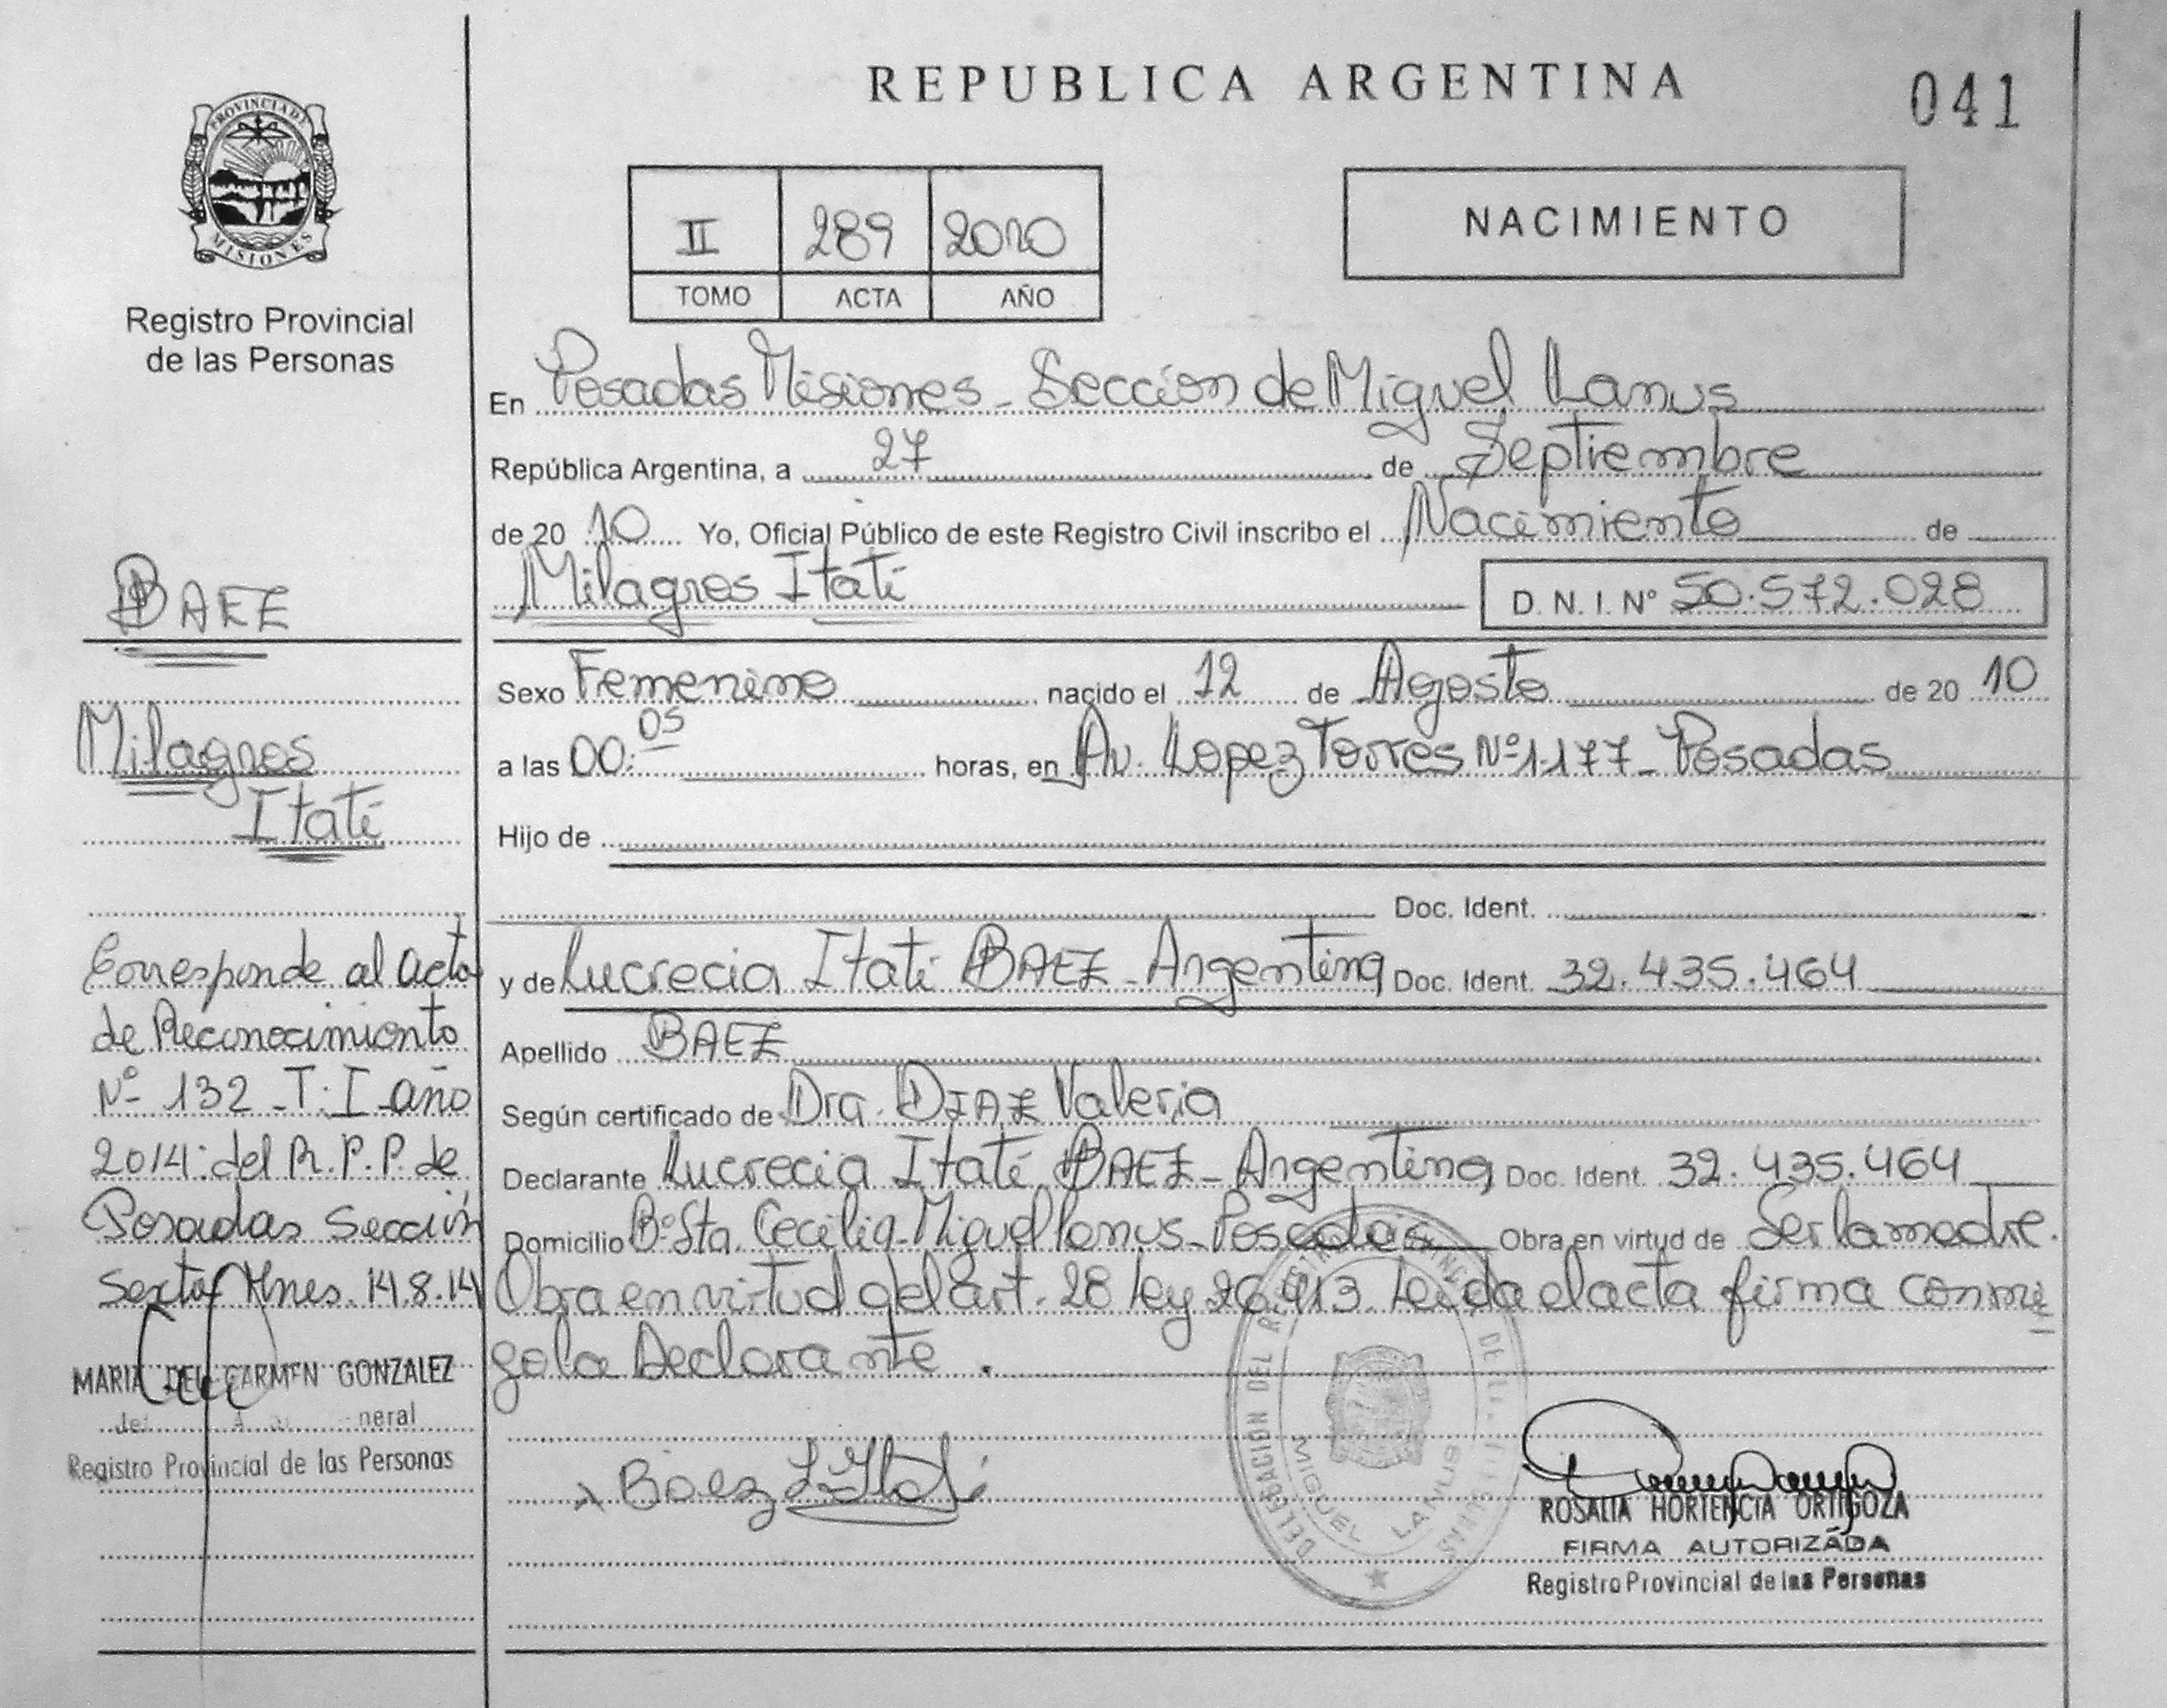 REPUBLICA ARGENTINA
041
PROVINCIA DE
MISIONES
Registro Provincial
de las Personas
II 289 2010
TOMO ACTA AÑO
NACIMIENTO
En Posadas Misiones - Sección de Miguel Lanus
República Argentina, a 27 de Septiembre
de 20 10 Yo, Oficial Público de este Registro Civil inscribo el Nacimiento de
Milagros Itatí D. N. I. Nº 50.572.028
Sexo Femenino nacido el 12 de Agosto de 20 10
a las 00:05 horas, en Av. Lopez Torres Nº 1.177 - Posadas
Hijo de
Doc. Ident.
y de Lucrecia Itatí BAEZ - Argentina Doc. Ident. 32.435.464
Apellido BAEZ
Según certificado de Dra. DIAZ Valeria
Declarante Lucrecia Itatí BAEZ - Argentina Doc. Ident. 32.435.464
Domicilio Bº Sta. Cecilia - Miguel Lanus - Posadas Obra en virtud de Ser la madre.
Obra en virtud del art. 28 Ley 26.413. Leida el acta firma conmi
go la Declarante.
Baez L. Itatí
ROSALIA HORTENCIA ORTIGOZA
FIRMA AUTORIZADA
Registro Provincial de las Personas
DELEGACION DEL
MIGUEL LANUS
BAEZ
Milagros
Itatí
Corresponde al acta
de Reconocimiento
Nº 132 - T: I año
2014: del R.P.P. de
Posadas Sección
Sexta Mnes. 14.8.14
MARIA DEL CARMEN GONZALEZ
Registro Provincial de las Personas